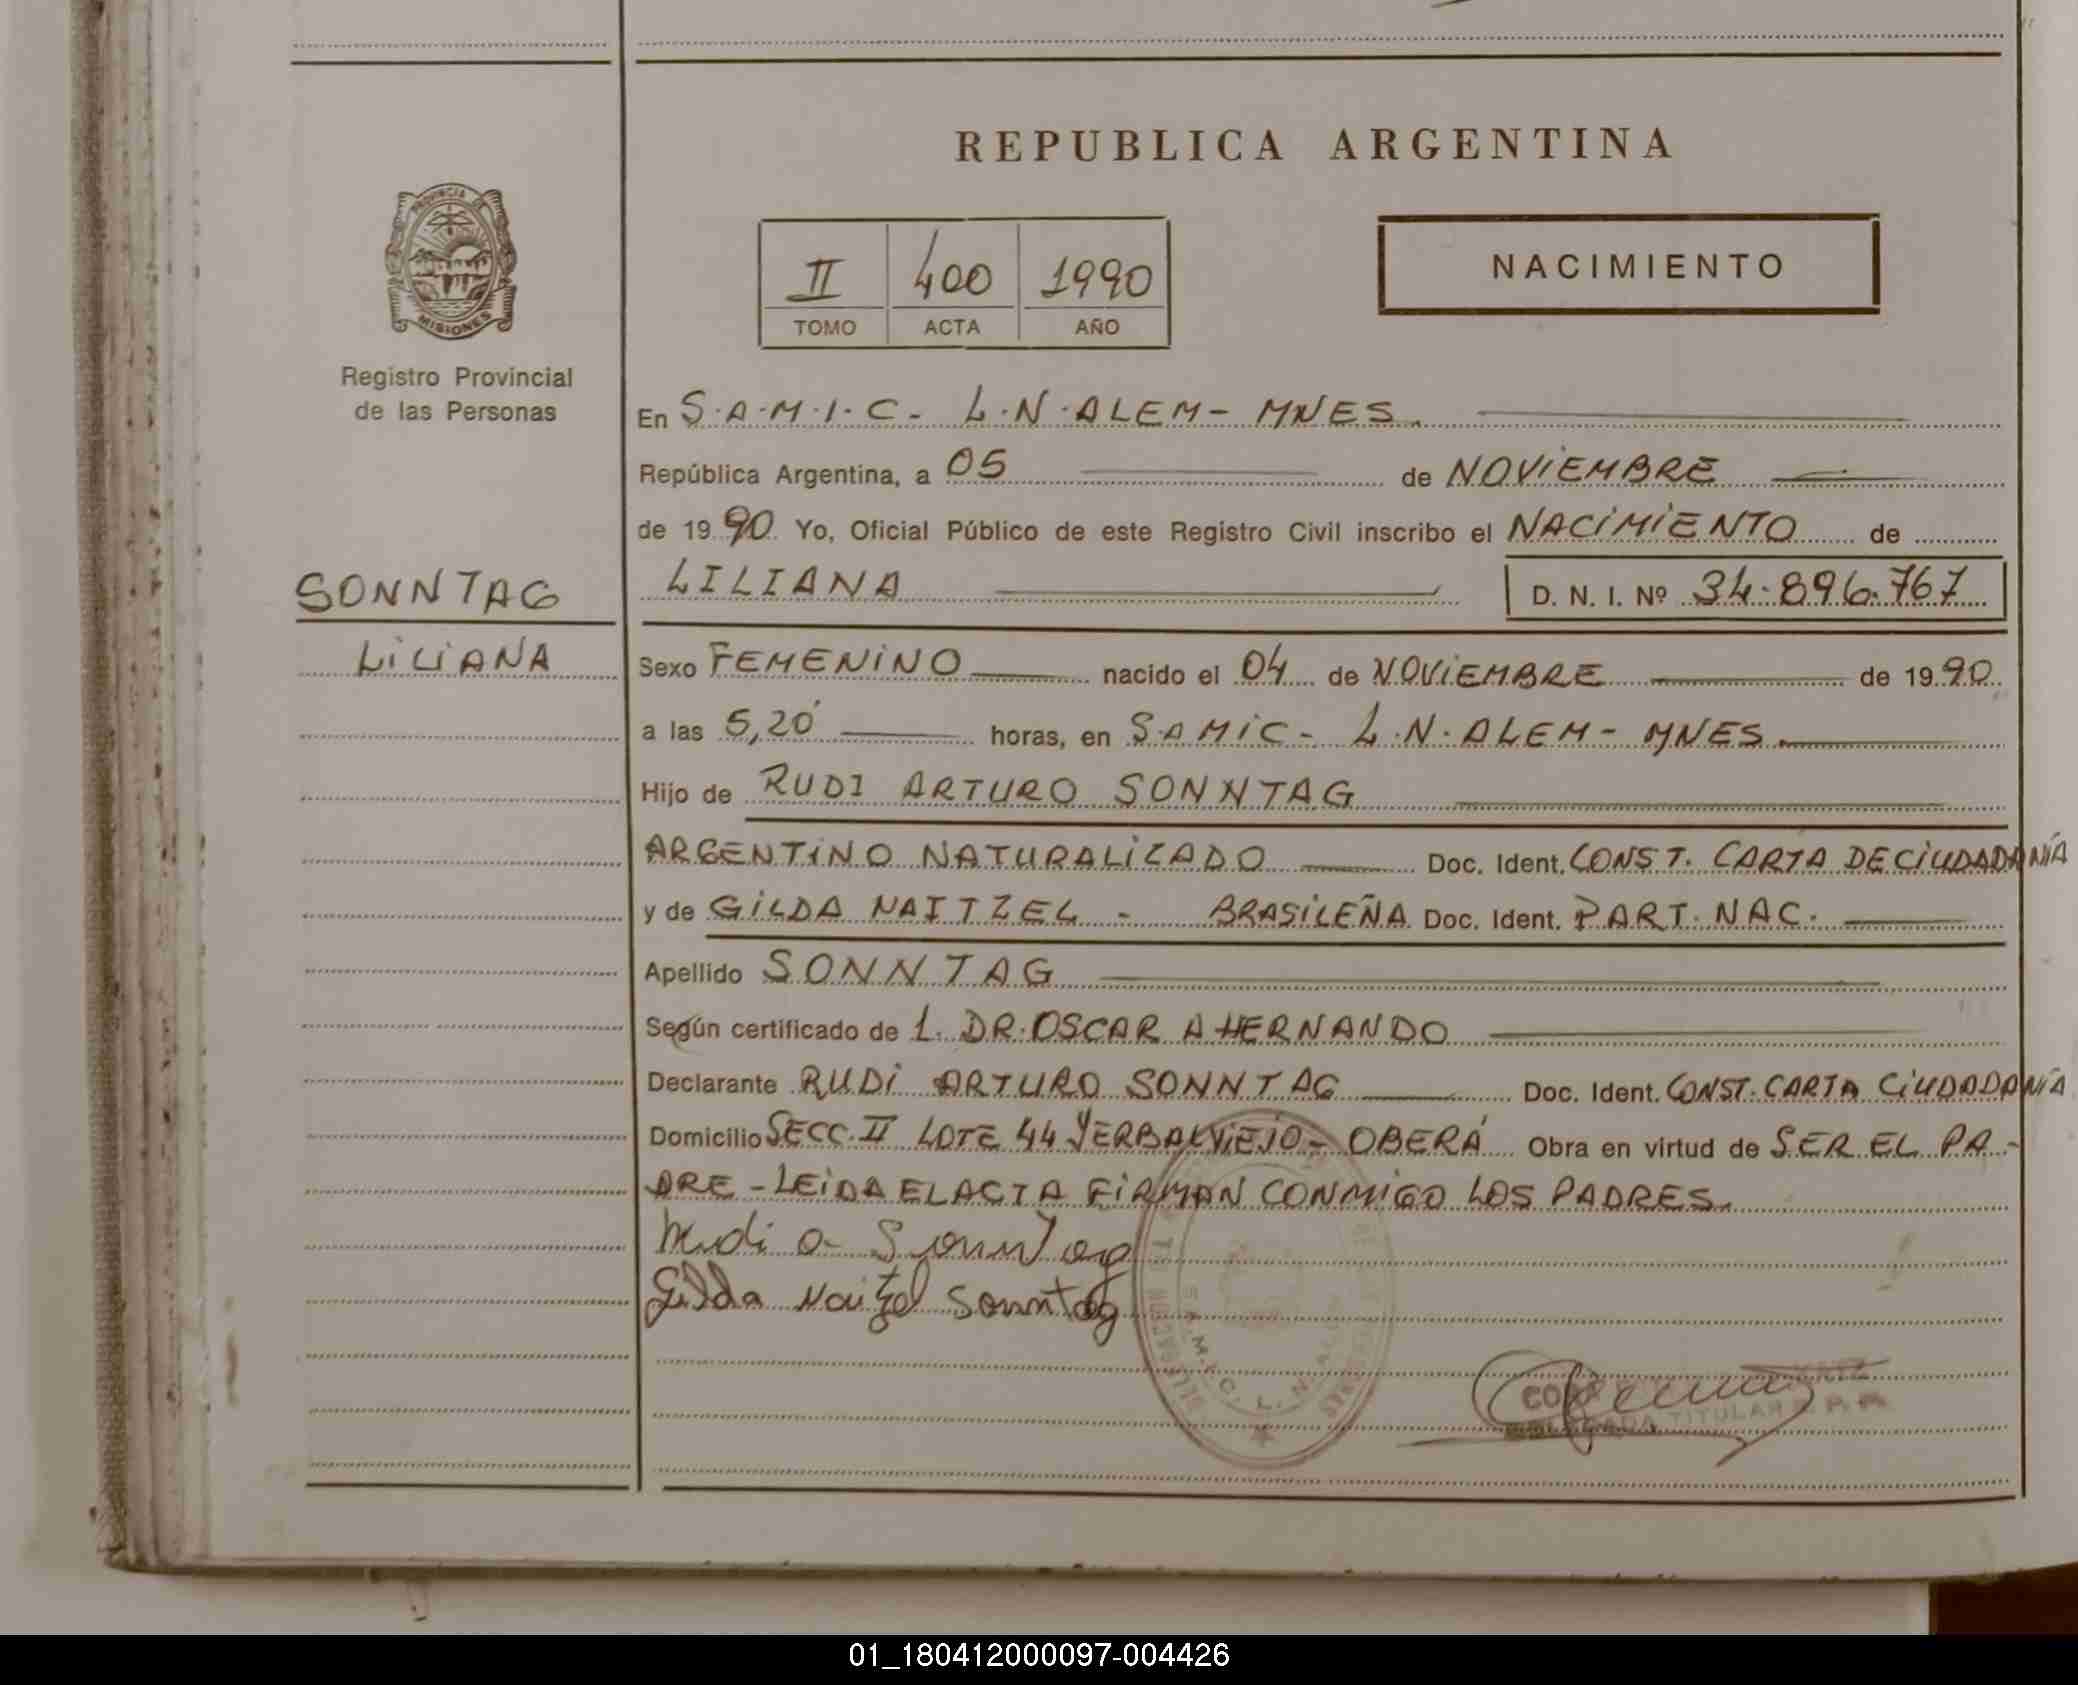 REPUBLICA ARGENTINA
PROVINCIA DE
MISIONES
Registro Provincial
de las Personas
II 400 1990
TOMO ACTA AÑO
NACIMIENTO
En S.A.M.I.C- L.N.ALEM- MNES.
República Argentina, a 05 de NOVIEMBRE
de 1990 Yo, Oficial Público de este Registro Civil inscribo el NACIMIENTO de
SONNTAG
LILIANA D. N. I. Nº 34.896.767
LILIANA
Sexo FEMENINO nacido el 04 de NOVIEMBRE de 1990
a las 5,20 horas, en S.A MIC- L.N.ALEM- MNES.
Hijo de RUDI ARTURO SONNTAG
ARGENTINO NATURALIZADO Doc. Ident. CONST. CARTA DE CIUDADANÍA
y de GILDA NAITZEL - BRASILEÑA Doc. Ident. PART. NAC.
Apellido SONNTAG
Según certificado de 1. DR. OSCAR A HERNANDO
Declarante RUDI ARTURO SONNTAG Doc. Ident. CONST. CARTA CIUDADANÍA
Domicilio SECC. II LOTE 44 YERBAL VIEJO- OBERÁ Obra en virtud de SER EL PA-
DRE - LEIDA EL ACTA FIRMAN CONMIGO LOS PADRES.
Rudi a Sonntag
Gilda Naitzel Sonntag
S.A.M.I.C. L.N. ALEM
TITULAR R. P. P.
01_180412000097-004426